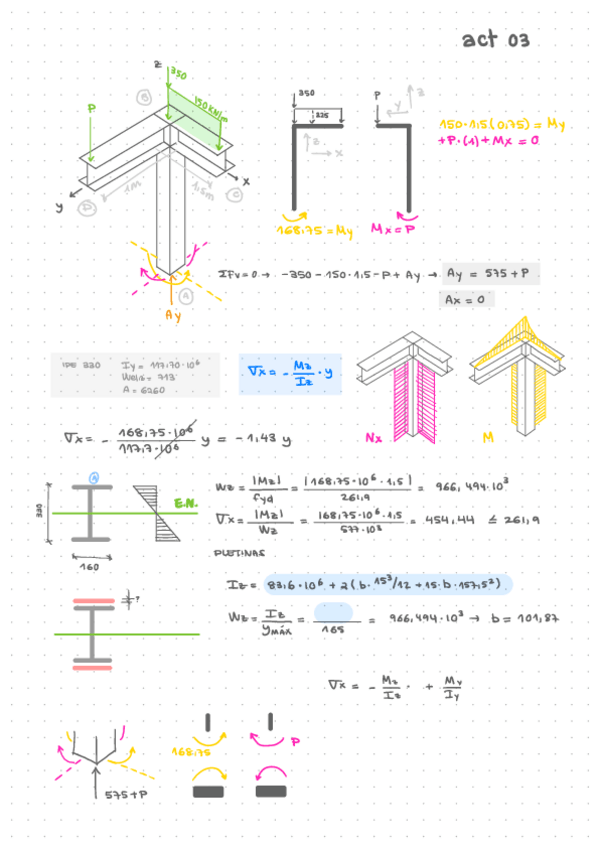 act 03
z
350
150 KN/m
P
B
x
y
1m
1,5m
D
C
A
Ay
350
225
z
x
168,75 = My
P
y
z
Mx = P
150·1,5(0,75) = My
+P·(1) + Mx = 0
ΣFv = 0 → -350 - 150·1,5 - P + Ay → Ay = 575 + P
Ax = 0
IPE 330 Iy = 117,70·10⁶
Welx = 713
A = 6260
∇x = - Mz/Iz · y
Nx
M
∇x = - 168,75·10⁶/117,7·10⁶ y = -1,43 y
330
160
E.N.
Wz = |Mz|/fyd = |168,75·10⁶·1,5|/261,9 = 966,494·10³
∇x = |Mz|/Wz = 168,75·10⁶·1,5/577·10³ = 454,44 ≤ 261,9
PLETINAS
?
Iz = 83,6·10⁶ + 2(b·15³/12 + 15·b·157,5²)
Wz = Iz/ymáx = /165 = 966,494·10³ → b = 101,87
∇x = - Mz/Iz · + My/Iy
575 + P
168,75
P